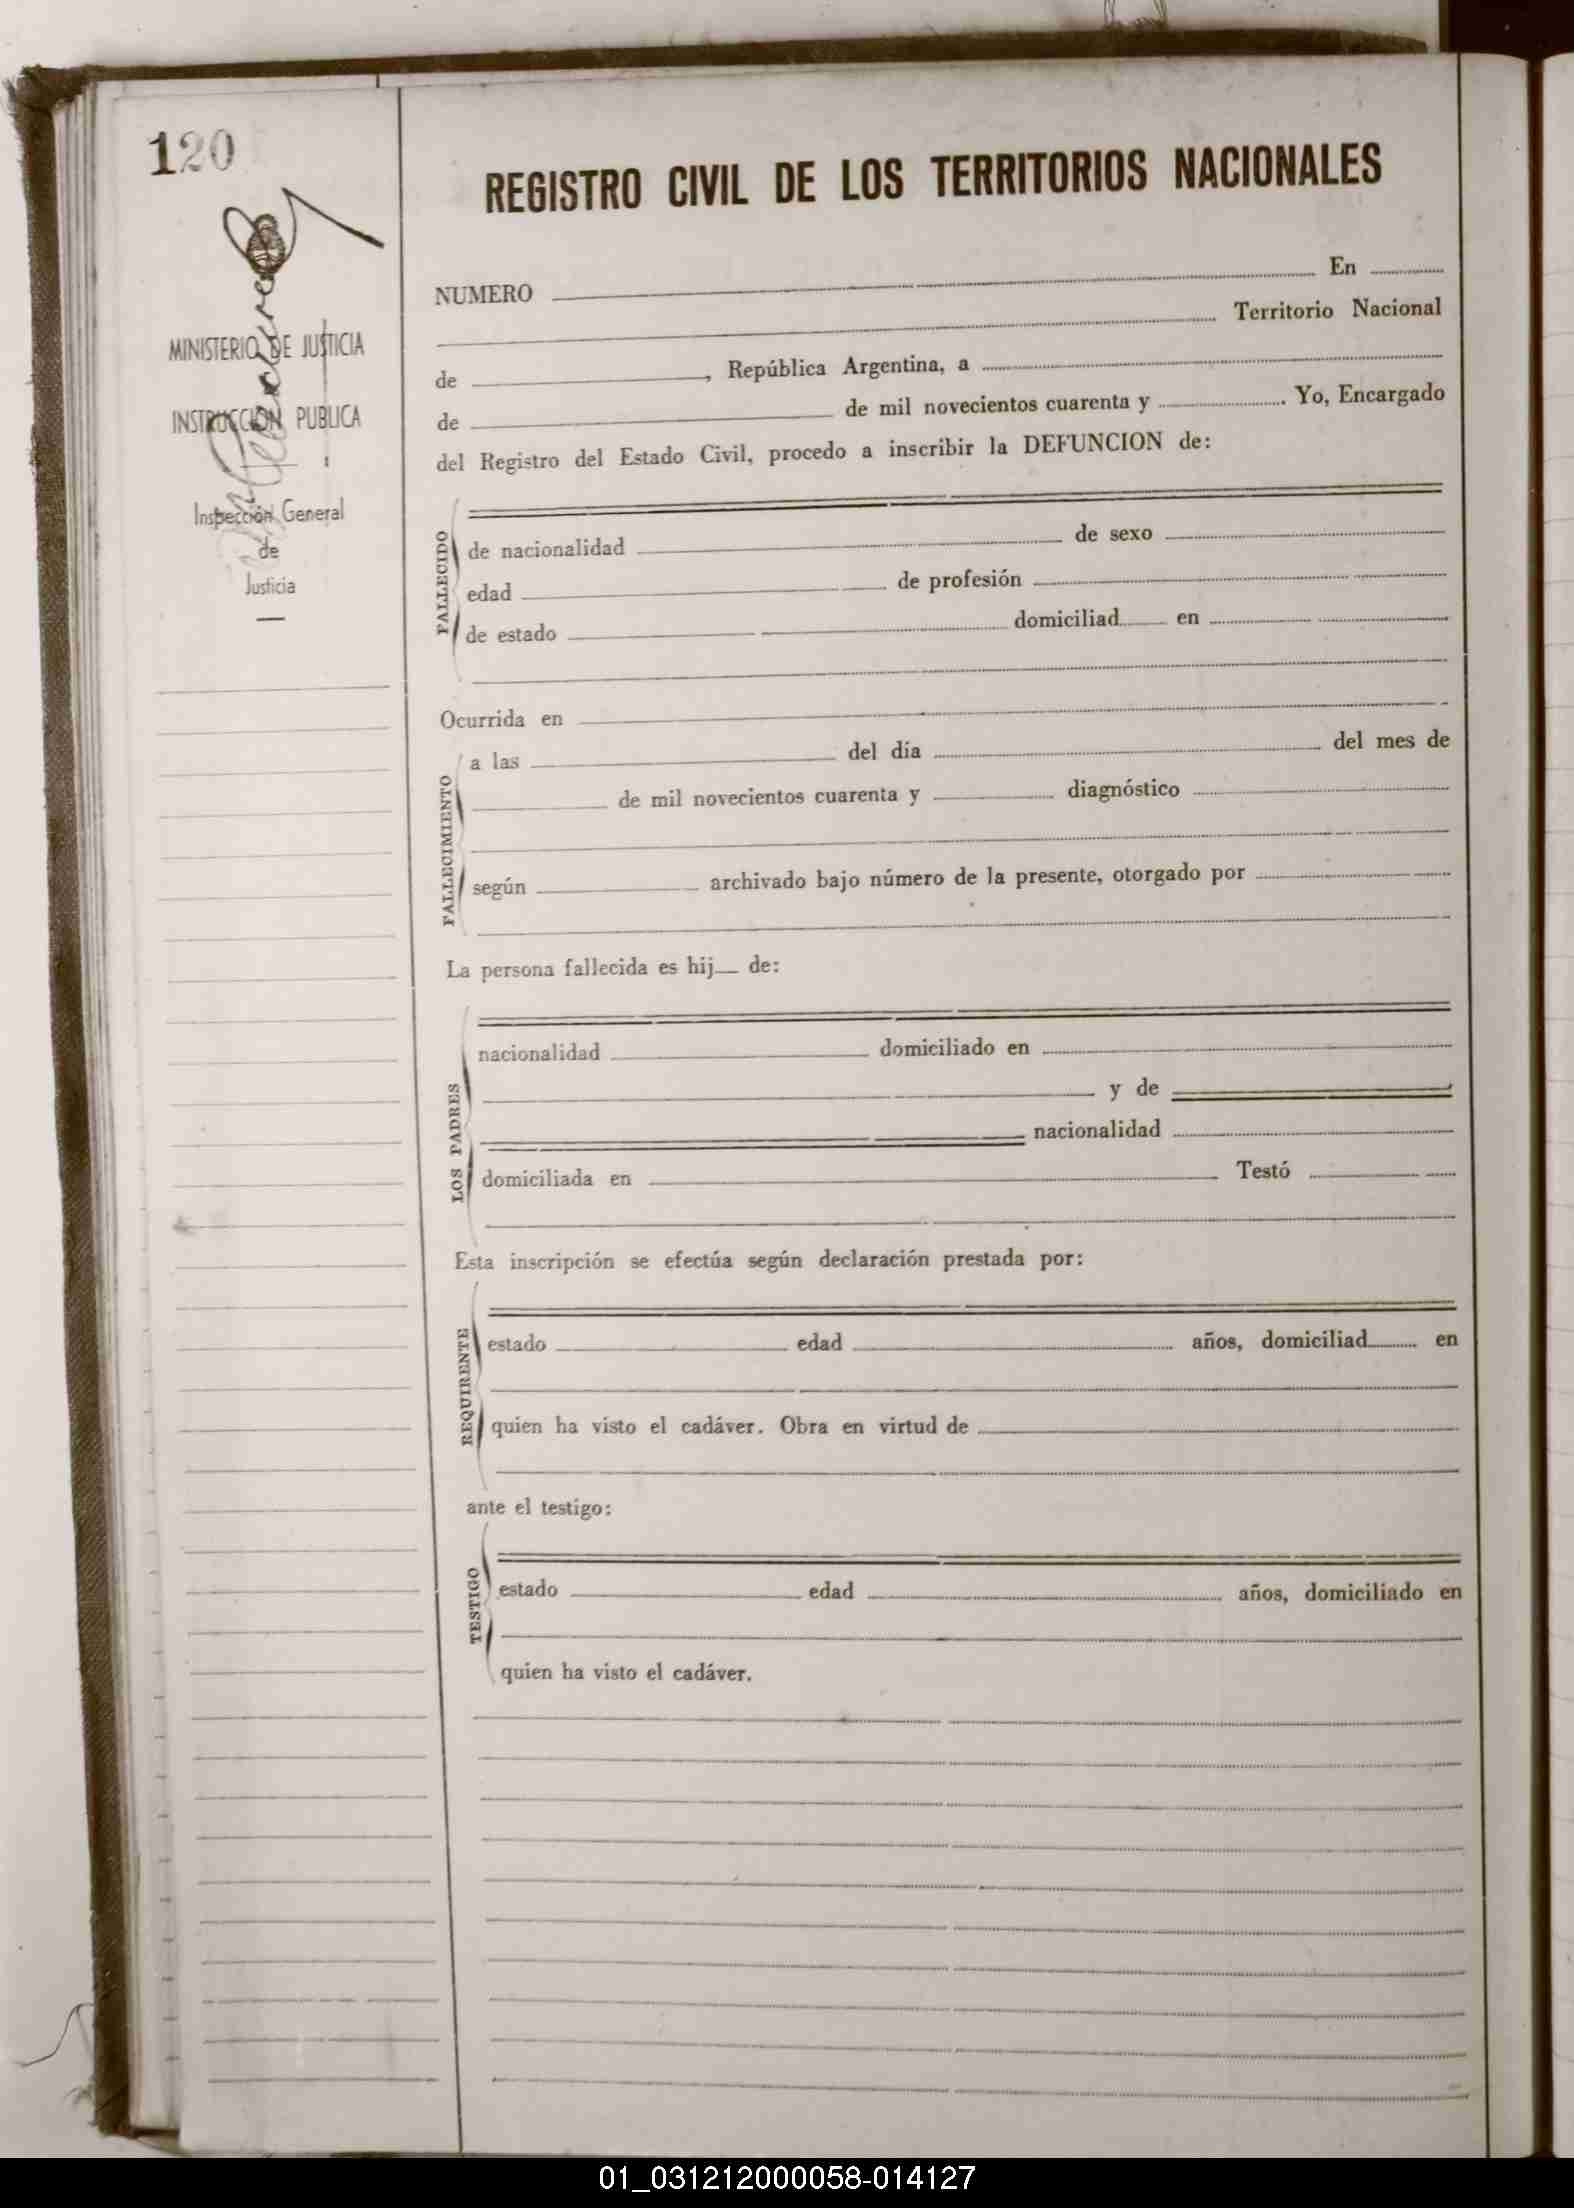 120
MINISTERIO DE JUSTICIA
INSTRUCCIÓN PUBLICA
Inspección General
de
Justicia
REGISTRO CIVIL DE LOS TERRITORIOS NACIONALES
NUMERO En
Territorio Nacional
de , República Argentina, a
de de mil novecientos cuarenta y . Yo, Encargado
del Registro del Estado Civil, procedo a inscribir la DEFUNCION de:
FALLECIDO
de nacionalidad de sexo
edad de profesión
de estado domiciliad en
Ocurrida en
FALLECIMIENTO
a las del día del mes de
de mil novecientos cuarenta y diagnóstico
según archivado bajo número de la presente, otorgado por
La persona fallecida es hij de:
LOS PADRES
nacionalidad domiciliado en
y de
nacionalidad
domiciliada en Testó
Esta inscripción se efectúa según declaración prestada por:
REQUIRENTE
estado edad años, domiciliad en
quien ha visto el cadáver. Obra en virtud de
ante el testigo:
TESTIGO
estado edad años, domiciliado en
quien ha visto el cadáver.
01_031212000058-014127